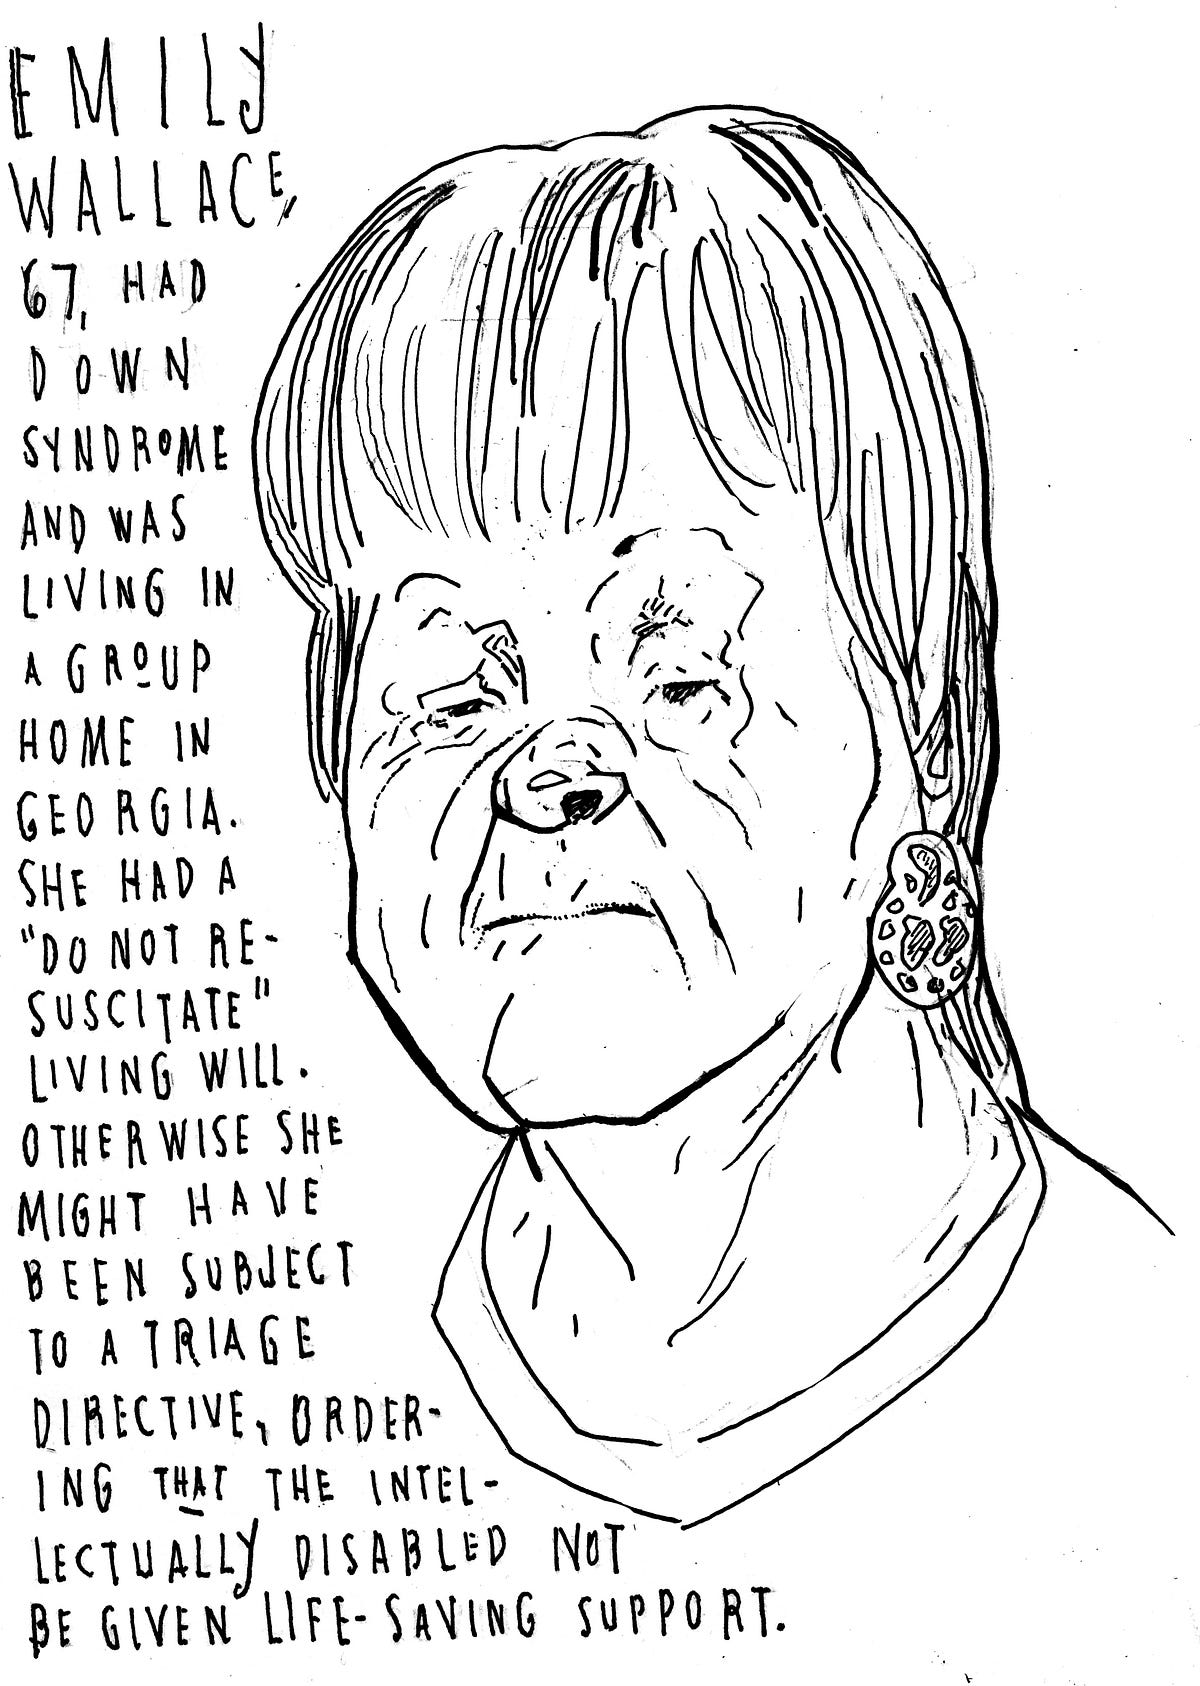 EMILY
WALLACE,
67, HAD
DOWN
SYNDROME
AND WAS
LIVING IN
A GROUP
HOME IN
GEORGIA.
SHE HAD A
"DO NOT RE-
SUSCITATE"
LIVING WILL.
OTHERWISE SHE
MIGHT HAVE
BEEN SUBJECT
TO A TRIAGE
DIRECTIVE, ORDER-
ING THAT THE INTEL-
LECTUALLY DISABLED NOT
BE GIVEN LIFE-SAVING SUPPORT.